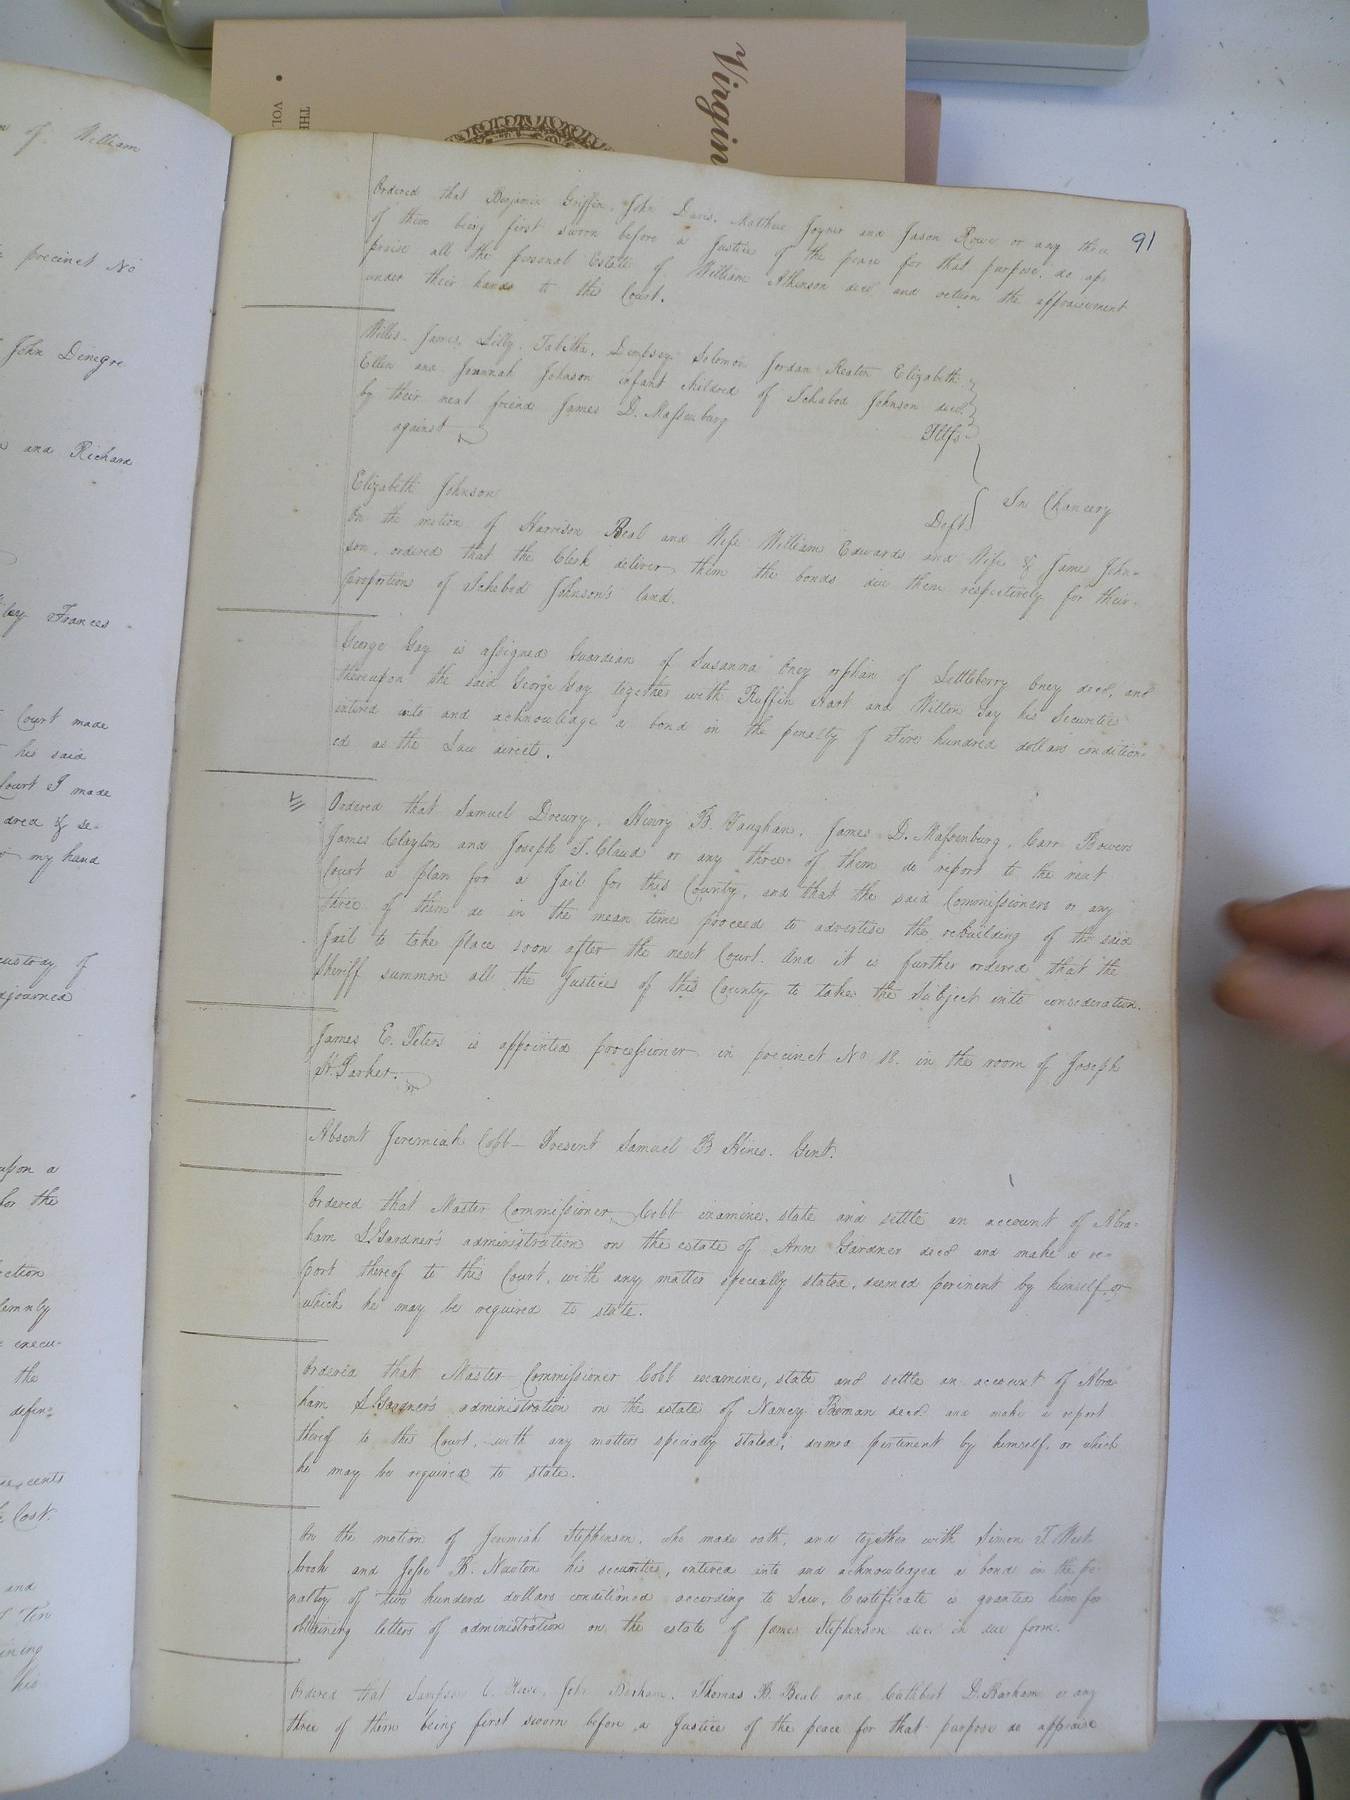 Virgin
91
Ordered that Benjamin Griffin, John Davis, Matthew Joyner and Jason Rowe or any three
of them being first sworn before a Justice of the peace for that purpose, do ap
praise all the personal Estate of William Atkinson decd and return the appraisement
under their hands to this Court.
Willis, James, Lilly, Tabitha, Dempsey, Solomon Jordan Keaton Elizabeth
Ellen and Joannah Johnson infant children of Ichabod Johnson decd
by their next friend James D. Massenburg
Pltfs
against
In Chancery
Elizabeth Johnson
Deft.
On the motion of Harrison Beal and Wife William Edwards and Wife & James John=
son, ordered that the Clerk deliver them the bonds due them respectively for their
proportions of Ichabod Johnson's land.
George Gay is assigned Guardian of Susanna Oney orphan of Littleberry Oney decd, and
thereupon the said George Gay together with Ruffin Hart and Wilton Gay his Securities
entered into and acknowledge a bond in the penalty of Five hundred dollars condition=
ed as the Law directs.
Ordered that Samuel Drewry, Henry B. Vaughan, James D. Massenburg, Carr Bowers
James Clayton and Joseph T. Claud or any three of them do report to the next
Court a plan for a Jail for this County, and that the said Commissioners or any
three of them do in the mean time proceed to advertise the rebuilding of the said
Jail to take place soon after the next Court. And it is further ordered that the
Sheriff summon all the Justices of this County to take the Subject into consideration.
James E. Peters is appointed processioner in precinct No 18. in the room of Joseph
H. Parker.
Absent Jeremiah Cobb - Present Samuel B Hines. Gent.
Ordered that Master Commissioner Cobb examine, state and settle an account of Abra-
ham L. Gardner's administration on the estate of Ann Gardner decd and make a re=
port thereof to this Court, with any matter specially stated, deemed perinent by himself or
which he may be required to state.
Ordered that Master Commissioner Cobb examine, state and settle an account of Abra-
ham L. Gardner's administration on the estate of Nancy Boman decd and make a report
thereof to this Court, with any matters specially stated, deemed pertinent by himself, or which
he may be required to state.
On the motion of Jeremiah Stephenson, who made oath, and together with Simon T. West
brook and Jesse B. Newton his securities, entered into and acknowledged a bond in the pe-
nalty of two hunderd dollars conditioned according to Law, Certificate is granted him for
obtaining letters of administration on the estate of James Stephenson decd in due form.
Ordered that Sampson C. Reese, John Barham, Thomas B. Beal and Cuthbert D. Barham or any
three of them being first sworn before a Justice of the peace for that purpose do appraise